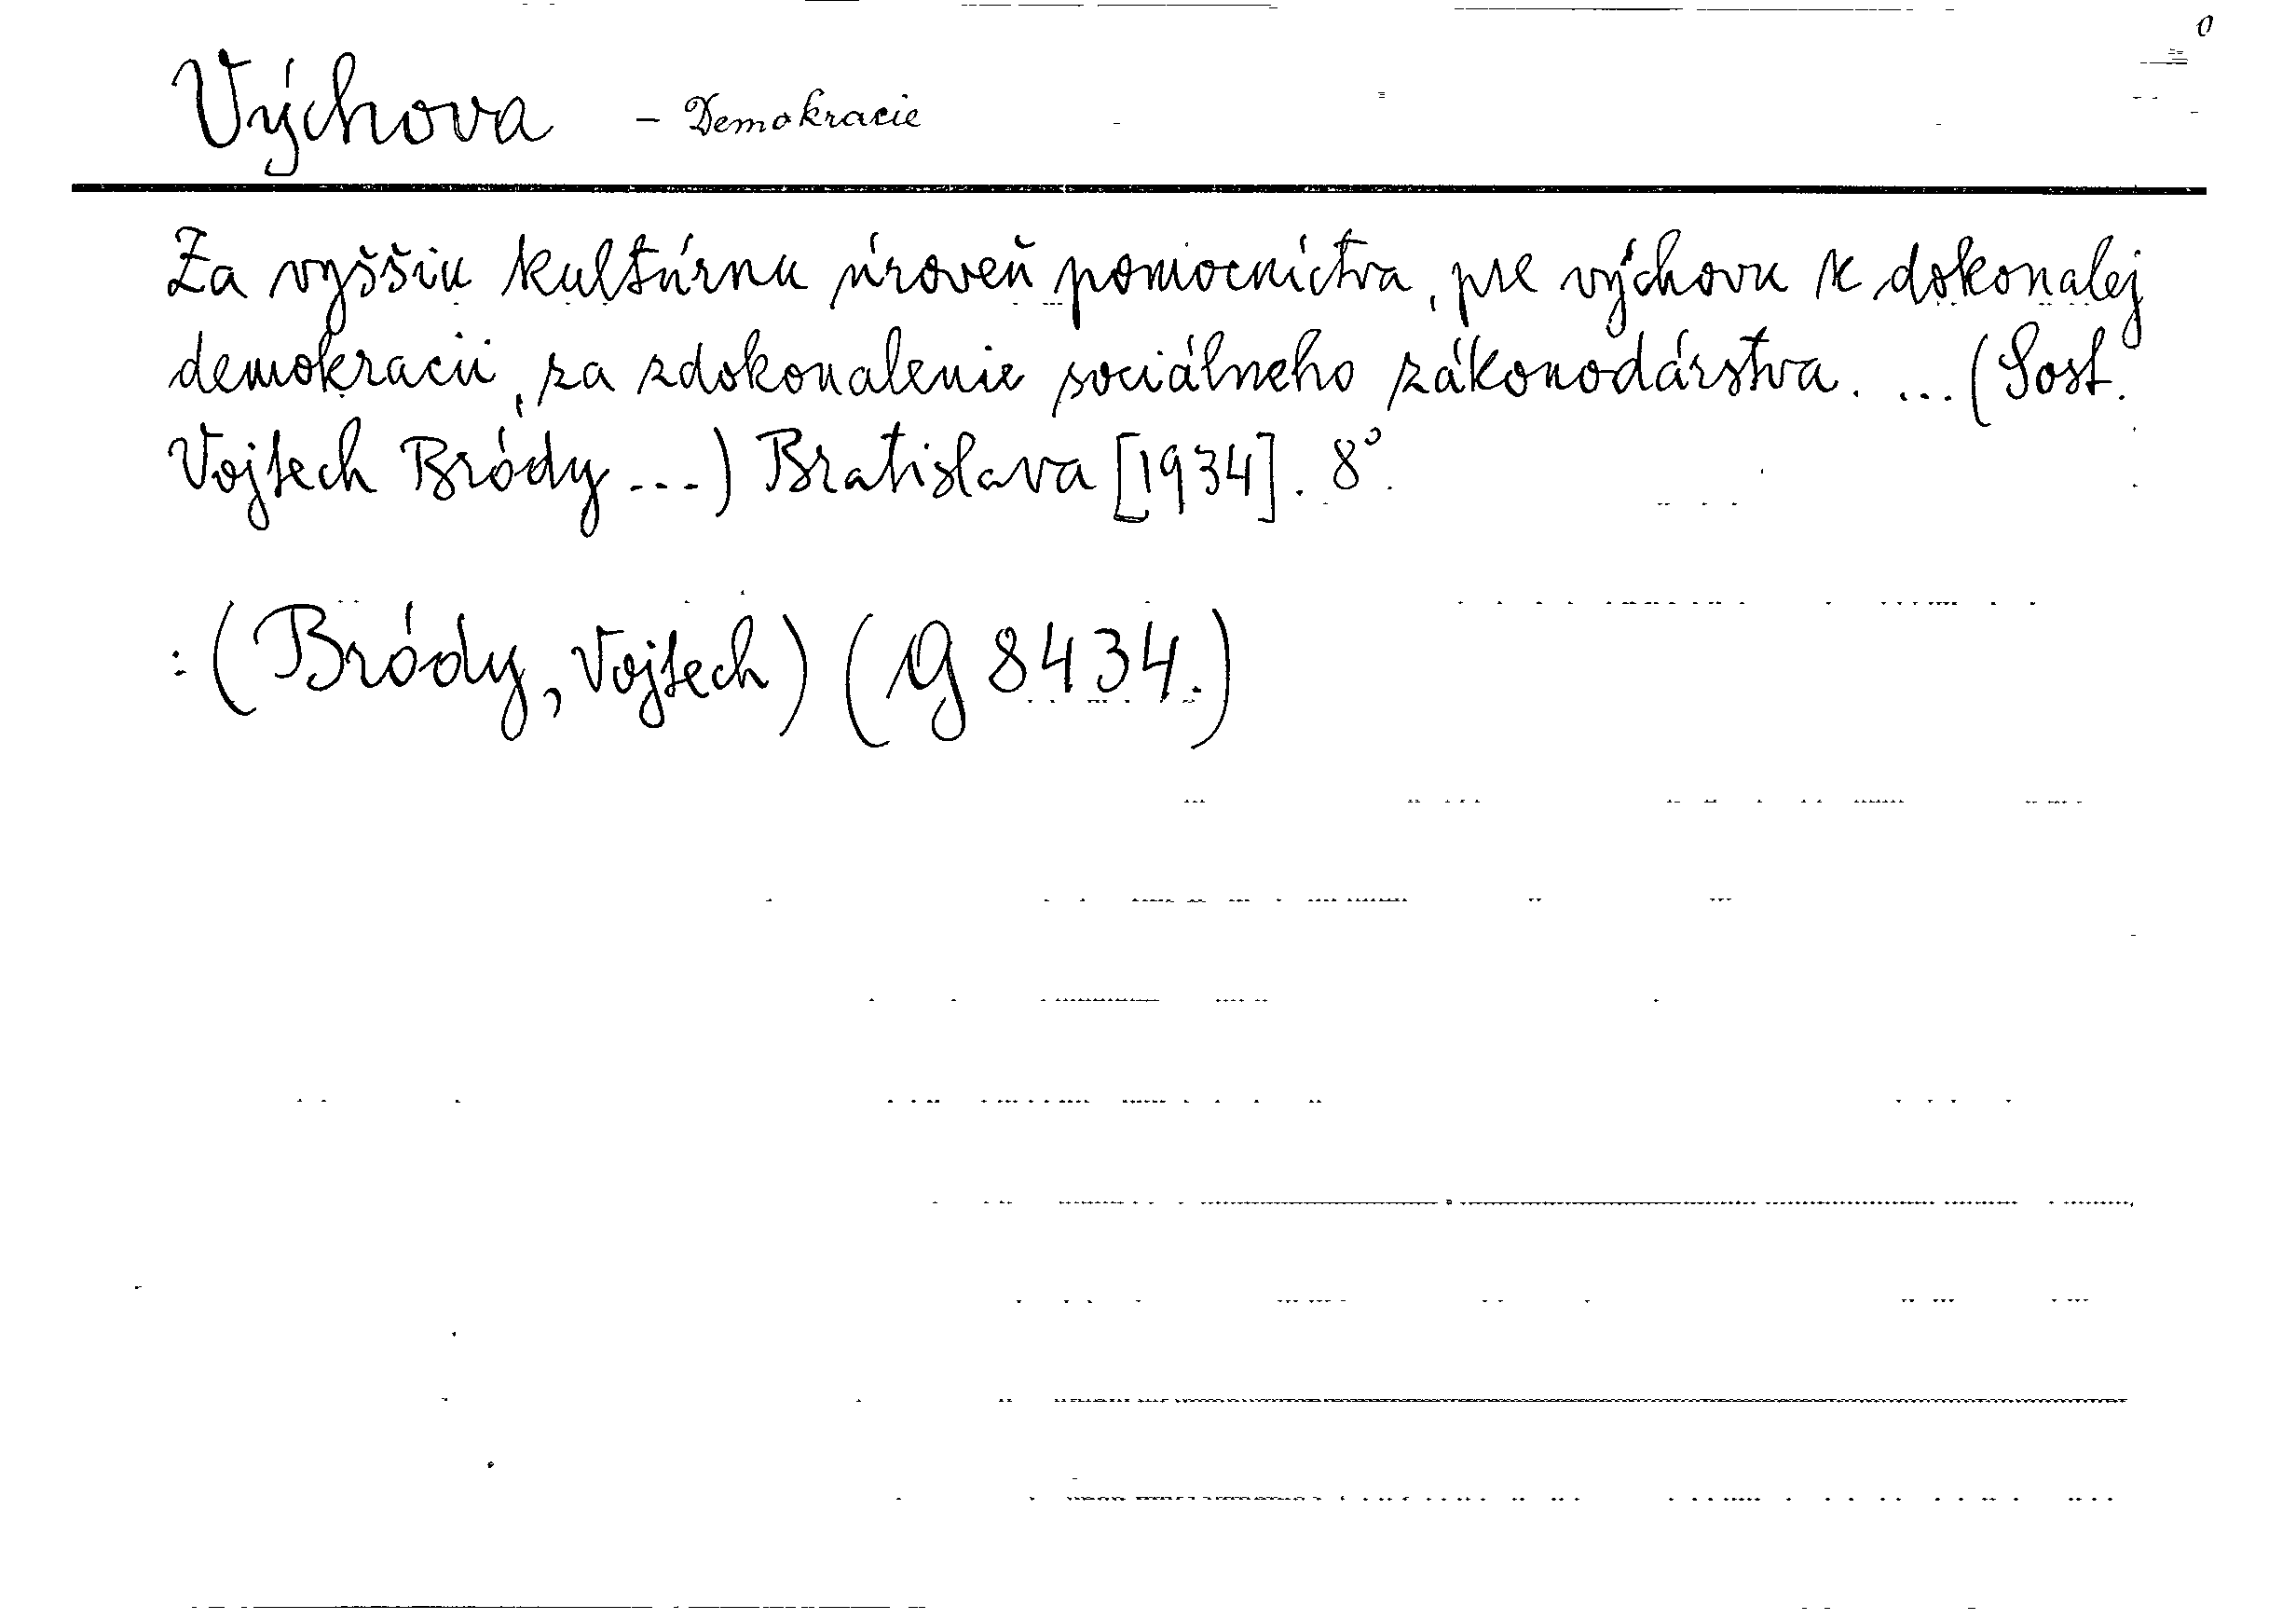 Výchova – Demokracie
Za vyššiu kultúrnu úroveň pomocníctva, pre výchovu k dokonalej
demokracii, za zdokonalenie sociálneho zákonodárstva. ... (Sost.
Vojtech Bródy ...) Bratislava [1934]. 8°.
: (Bródy, Vojtech) (G 8434.)